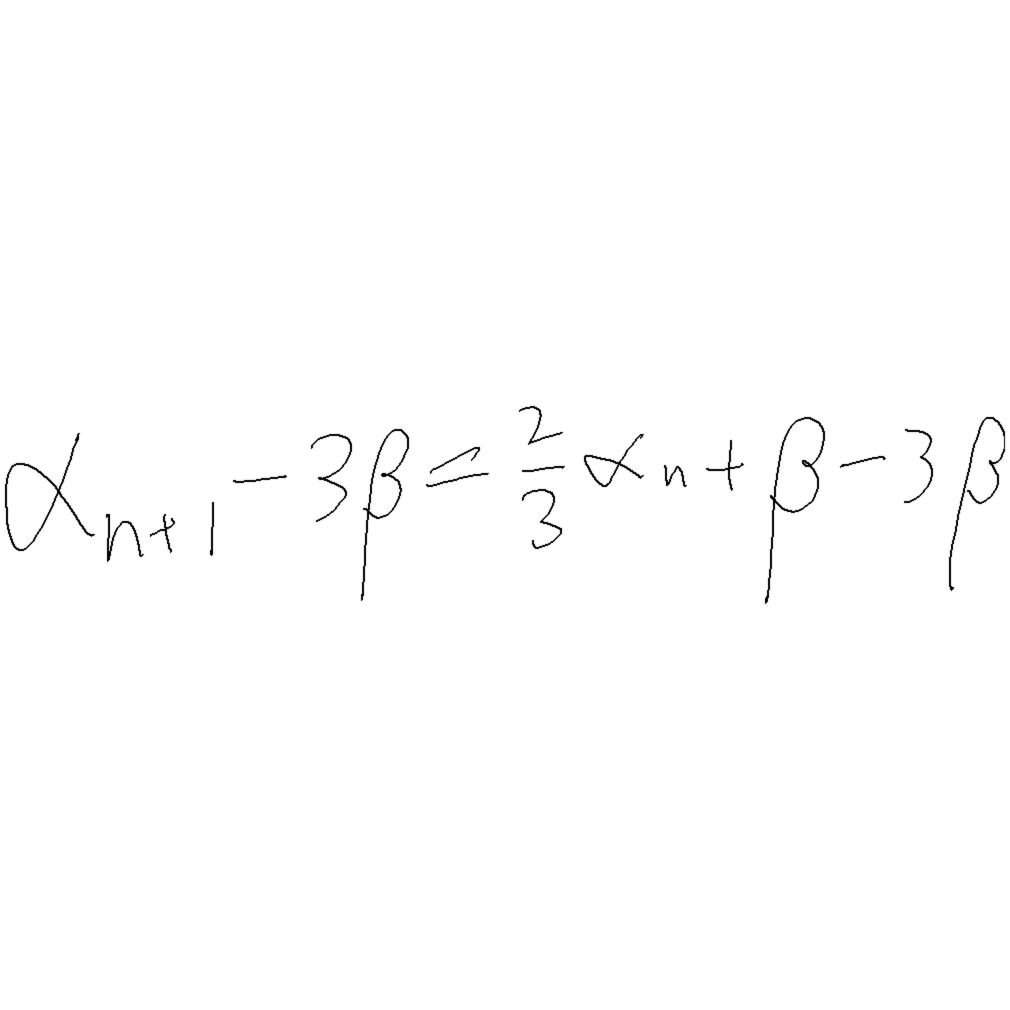 α_{n+1} - 3β = \frac{2}{3} α_n + β - 3β